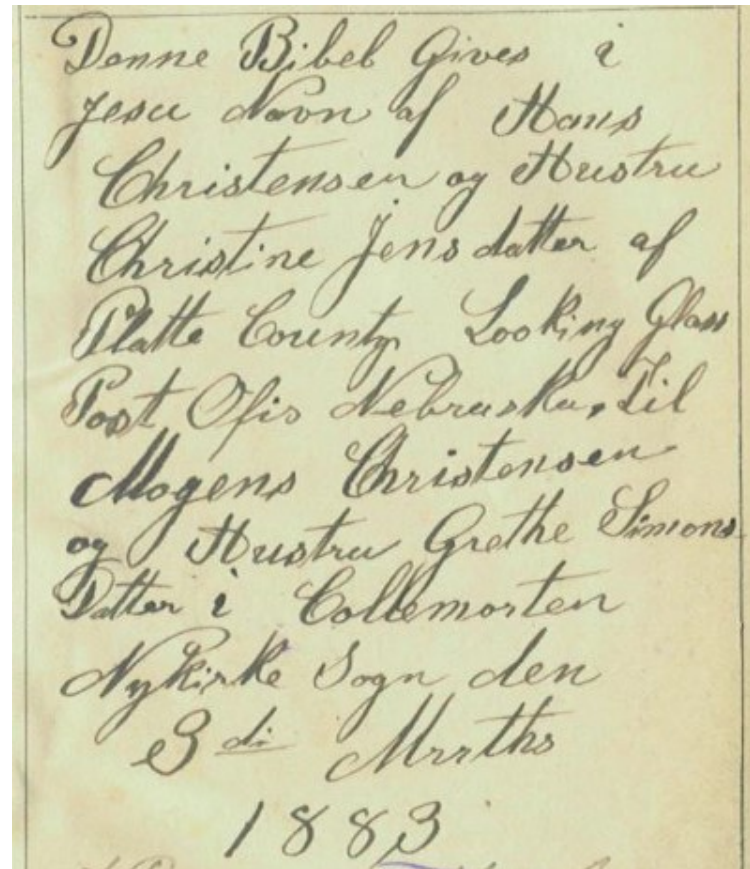 Denne Bibel Gives i
Jesu Navn af Hans
Christensen og Hustru
Christine Jens datter af
Platte County. Looking Glass
Post Ofis Nebraska. Til
Mogens Christensen
og Hustru Grethe Simons
Datter i Collemorten
Nykirke Sogn den
3 di
1883